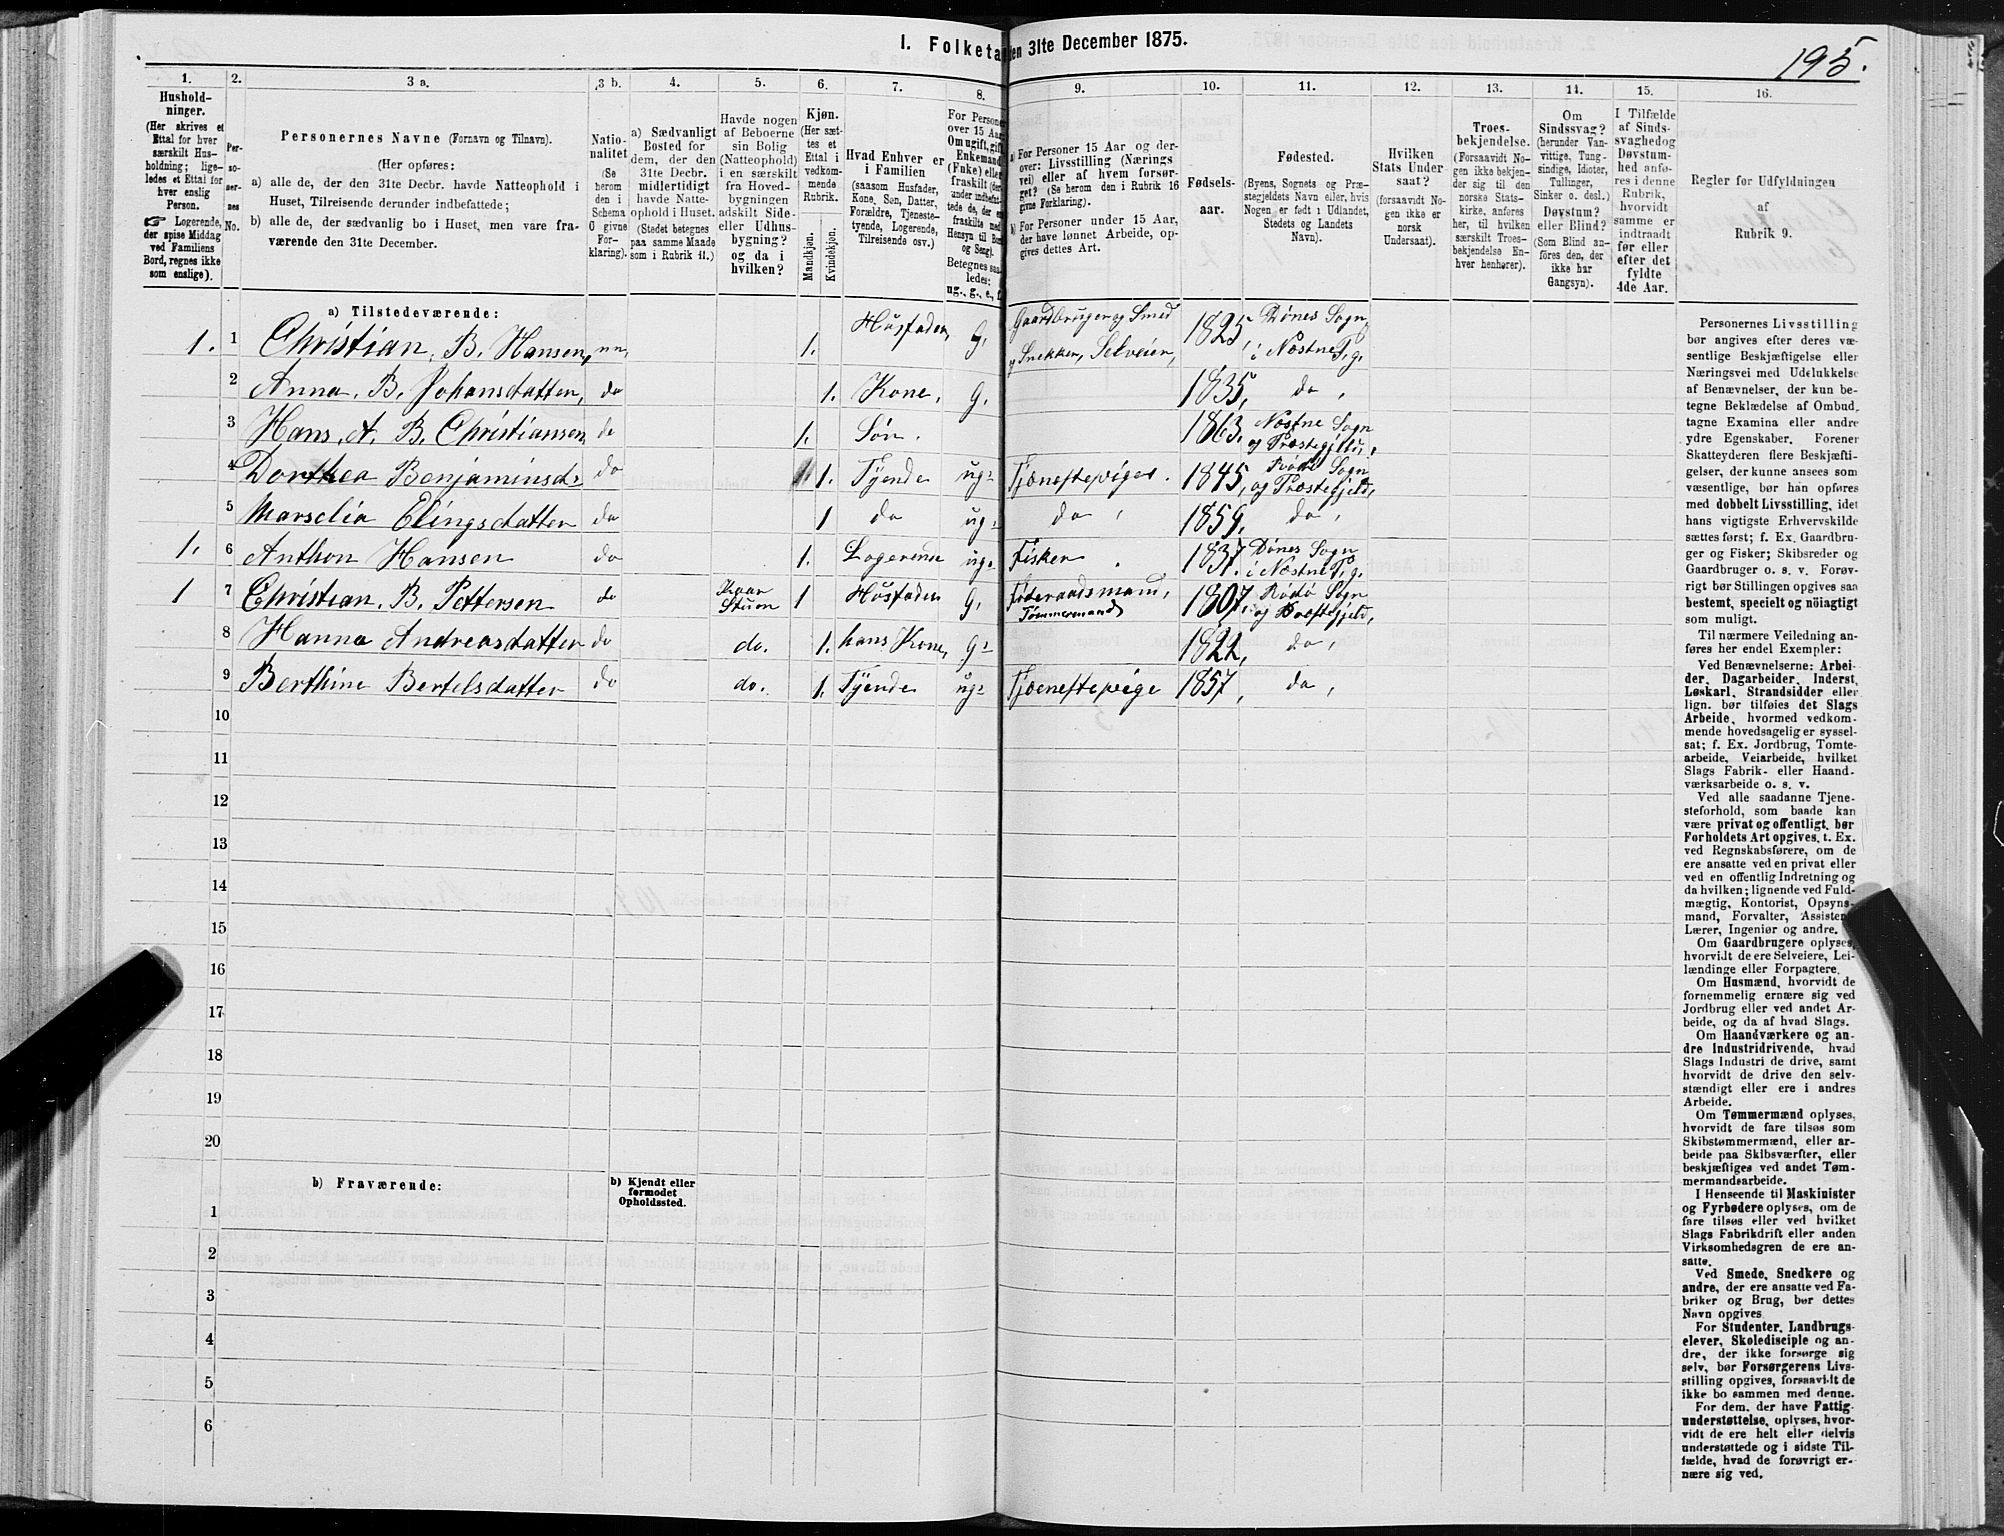 I. Folketæ den 31te December 1875.
195.
1. 2. 3 a. 3 b. 4. 5. 6. 7. 8. 9. 10. 11. 12. 13. 14. 15. 16.
Hushold-
ninger.
(Her skrives et
Ettal for hver
særskilt Hus-
holdning; lige-
ledes et Ettal for
hver enslig
Person.
Logerende,
der spise Middag
ved Familiens
Bord, regnes ikke
som enslige).
Per-
so-
ner-
nes
No.
Personernes Navne (Fornavn og Tilnavn).
(Her opføres:
a) alle de, der den 31te Decbr. havde Natteophold i
Huset, Tilreisende derunder indbefattede;
b) alle de, der sædvanlig bo i Huset, men vare fra-
værende den 31te December.
Natio-
nalitet
(Se
herom
den i
Schema
O givne
For-
klaring).
a) Sædvanligt
Bosted for
dem, der den
31te Decbr.
midlertidigt
havde Natte-
ophold i Huset.
(Stedet betegnes
paa samme Maade
som i Rubrik 11.)
Havde nogen
af Beboerne
sin Bolig
(Natteophold)
i en særskilt
fra Hoved-
bygningen
adskilt Side-
eller Udhus-
bygning?
og da i
hvilken?
Kjøn.
(Her sæt-
tes et
Ettal i
vedkom-
mende
Rubrik.
Mandkjøn.
Kvindekjøn.
Hvad Enhver er
i Familien
(saasom Husfader,
Kone, Søn, Datter,
Forældre, Tjeneste-
tyende, Logerende,
Tilreisende osv.)
For Person
over 15 Aar
Om ugift, gift,
Enkemand
(Enke) eller
fraskilt
Hensyn til Bo
og Seng).
Betegnes saa-
ledes:
ug., g., e., f.
a) For Personer 15 Aar og der-
over: Livsstilling (Nærings
vei) eller af hvem forsør-
get? (Se herom den i Rubrik 16
givne Forklaring).
b) For Personer under 15 Aar,
der have lønnet Arbeide, op-
gives dettes Art.
Fødsels-
aar.
Fødested.
(Byens, Sognets og Præ-
stegjeldets Navn, eller, hvis
Nogen er født i Udlandet,
Stedets og Landets
Navn).
Hvilken
Stats Under
saat?
(forsaavidt No-
gen ikke er
norsk
Undersaat).
Troes-
bekjendelse.
(Forsaavidt No-
gen ikke bekjen-
der sig til den
norske Stats-
kirke, anføres
her, til hvilken
særskilt Troes-
bekjendelse En-
hver henhører).
Om
Sindssvag?
(herunder Van-
vittige, Tung-
sindige, Idioter,
Tullinger,
Sinker o. desl.)
Døvstum?
eller Blind?
(Som Blind an-
føres den, der
ikke har
Gangsyn).
I Tilfælde
af Sinds-
svaghedog
Døvstum-
hed anfø-
res i denne
Rubrik,
hvorvidt
samme er
indtraadt
før eller
efter det
fyldte
4de Aar.
Regler for Udfyldningen
af
Rubrik 9.
a) Tilstedeværende:
1. 1 Christian. B. Hansen, nn, 1. Husfader, G, Gaardbruger og Smed og Snekker, Selveier, 1825, Dønes Sogn i Næstne P, g.
2 Anna. B. Johansdatter, do 1. Kone, G, 1835, do,
3 Hans. A. B. Christiansen, do 1. Søn. 1863. Næstne Sogn og Præstegjeld,
4 Dorthea Benjaminsd: do 1. Tyende ug: Tjenestepiger. 1845, Rødø Sogn og Præstegjeld,
5 Marselia Elingsdatter do 1 do ug: do, 1859, do,
1. 6 Anthon Hansen do 1. Logerende ug: Fisker 1837. Dønes Sogn i Næstne P, g.
1 7 Christian. B. Pettersen do Kaar Stuen 1 Husfader G, Føderaadsmand, Tømmermand 1807, Rødø Sogn og Præstegjeld,
8 Hanna Andreasdatter do do. 1. hans Kone, G: 1822, do,
9 Berthine Bertelsdatter do do. 1. Tyende ug: Tjenestepige 1857, do,
10
11
12
13
14
15
16
17
18
19
20
b) Fraværende:
b) Kjendt eller
formodet
Opholdssted.
1
2
3
4
5
6
Personernes Livsstilling
bør angives efter deres væ-
sentlige Beskjæftigelse eller
Næringsvei med Udelukkelse
af Benævnelser, der kun be-
tegne Beklædelse af Ombud,
tagne Examina eller andre
ydre Egenskaber. Forener
Skatteyderen flere Beskjæfti-
gelser, der kunne ansees som
væsentlige, bør han opføres
med dobbelt Livsstilling, idet
hans vigtigste Erhvervskilde
sættes først; f. Ex. Gaardbru-
ger og Fisker; Skibsreder og
Gaardbruger o. s. v. Forøv-
rigt bør Stillingen opgives saa
bestemt, specielt og nøiagtigt
som muligt.
Til nærmere Veiledning an-
føres her endel Exempler:
Ved Benævnelserne: Arbei-
der, Dagarbeider, Inderst,
Løskarl, Strandsidder eller
lign. bør tilføies det Slags
Arbeide, hvormed vedkom-
mende hovedsagelig er syssel-
sat; f. Ex. Jordbrug, Tomte-
arbeide, Veiarbeide, hvilket
Slags Fabrik- eller Haand-
værksarbeide o. s. v.
Ved alle saadanne Tjene-
steforhold, som baade kan
være privat og offentligt, bør
Forholdets Art opgives, t. Ex.
ved Regnskabsførere, om de
ere ansatte ved en privat eller
ved en offentlig Indretning og
da hvilken; lignende ved Fuld-
mægtig, Kontorist, Opsyns-
mand, Forvalter, Assistent,
Lærer, Ingeniør og andre.
Om Gaardbrugere oplyses,
hvorvidt de ere Selveiere, Lei-
lændinge eller Forpagtere.
Om Husmænd, hvorvidt de
fornemmelig ernære sig ved
Jordbrug eller ved andet Ar-
beide, og da af hvad Slags.
Om Haandværkere og an-
dre Industridrivende, hvad
Slags Industri de drive, samt
hvorvidt de drive den selv-
stændigt eller ere i andres
Arbeide.
Om Tømmermænd oplyses,
hvorvidt de fare tilsøs som
Skibstømmermænd, eller ar-
beide paa Skibsværfter, eller
beskjæftiges ved andet Tøm-
mermandsarbeide.
I Henseende til Maskinister
og Fyrbødere oplyses, om de
fare tilsøs eller ved hvilket
Slags Fabrikdrift eller anden
Virksomhedsgren de ere an-
satte.
Ved Smede, Snedkere og
andre, der ere ansatte ved Fa-
briker og Brug, bør dettes
Navn opgives
For Studenter, Landbrugs-
elever, Skoledisciple og an-
dre, der ikke forsørge sig
selv, bør Forsørgerens Livs-
stilling opgives, forsaavidt de
ikke bo sammen med denne.
For dem, der have Fattig-
understøttelse, oplyses, hvor-
vidt de ere helt eller delvis
understøttede og i sidste Til-
fælde, hvad de forøvrigt er-
nære sig ved.